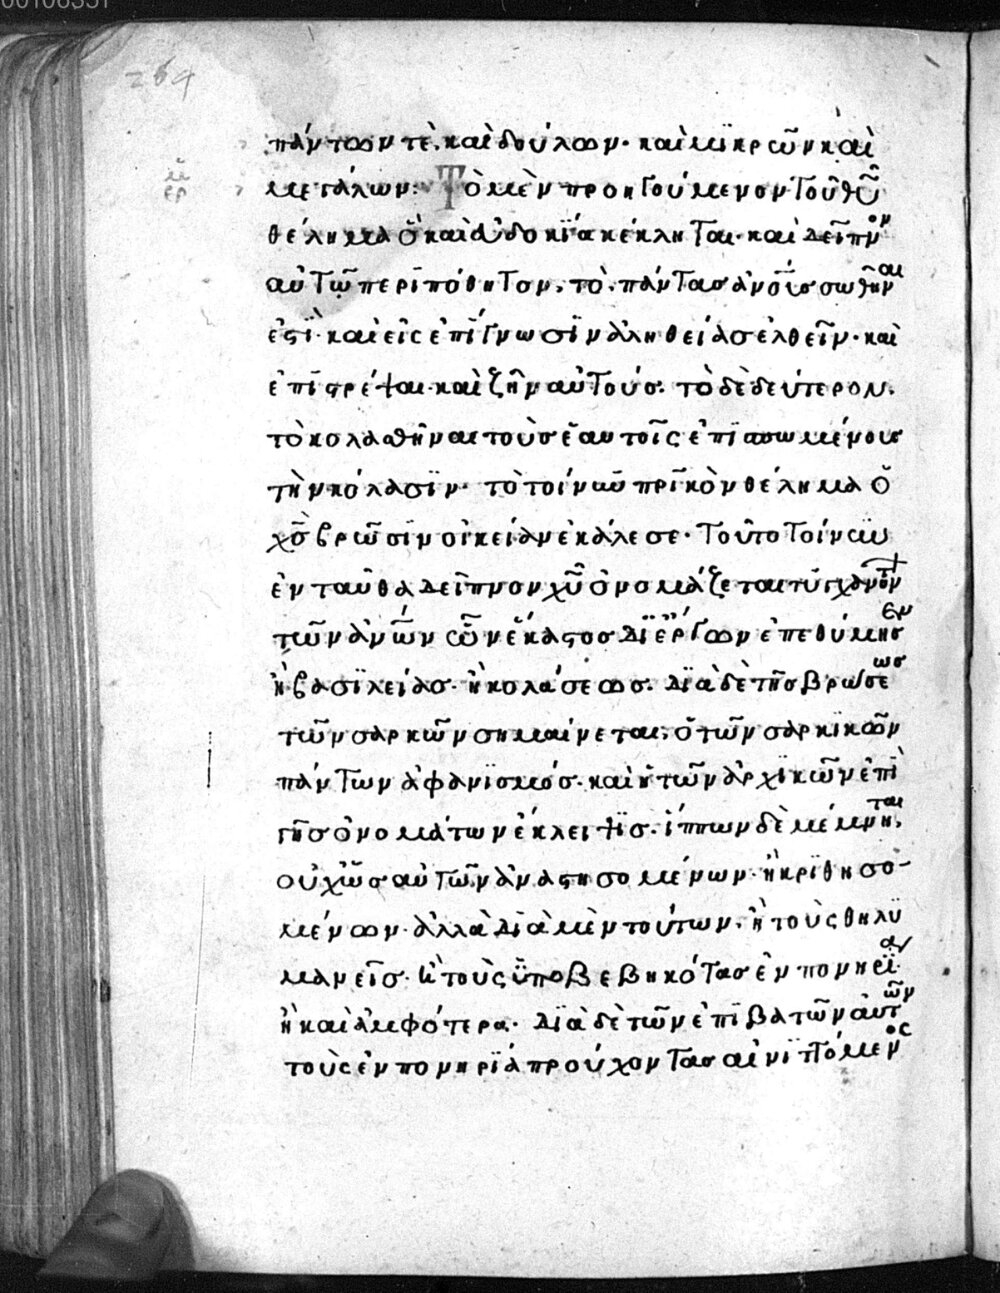 00108351
264
πάντων τὲ, καὶ δούλων· καὶ μϊκρῶν καὶ
μεγάλων: Τὸ μὲν προηγούμενον τοῦ θῦ
θέλημα ὃ καὶ εὐδοκΐα κέκληται· καὶ δεῖπνον
αὐτῶ περιπόθητον, τὸ, πάντας ἀνοῖς σωθῆναι
ἐςϊ· καὶ εἰς ἐπΐγνωσϊν ἀληθείας ἐλθεῖν· καὶ
ἐπιςρέψαι· καὶ ζῆν αὐτούς. τὸ δὲ δεύτερον,
τὸ κολασθῆναι τοὺς ἑαυτοῖς ἐπϊσπωμένους
τὴν κόλασϊν· τὸ τοίνυν πρϊκὸν θέλημα ὃ
χς βρῶσϊν οἰκείαν ἐκάλεσε· τοῦτο τοίνυν
ἐνταῦθα δεῖπνον χῦ ὀνομάζεται τυγχάνον
τῶν ἀνων ὧν ἕκαςος δϊ ἔργων ἐπεθύμησεν
ἢ βασϊλείας· ἢ κολάσεως. δϊὰ δὲ τῆς βρώσεως
τῶν σαρκῶν σημαίνεται, ὁ τῶν σαρκϊκῶν
πάντων ἀφανϊσμός· καὶ ἡ τῶν ἀρχϊκῶν ἐπὶ
γῆς ὀνομάτων ἔκλειψϊς· ἵππων δὲ μέμνηται,
οὐχ ὡς αὐτῶν ἀναςησομένων· ἢ κρϊθησο-
μένων· ἀλλὰ δϊὰ μὲν τούτων, ἢ τοὺς θηλϋ
μανεῖς· ἢ τοὺς ὑποβεβηκότας ἐν πονηρΐα,
ἢ καὶ ἀμφότερα· δϊὰ δὲ τῶν ἐπϊβατῶν αὐτῶν
τοὺς ἐν πονηρΐα προύχοντας αἰνϊττόμενος